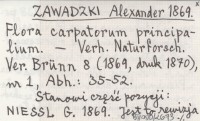 ZAWADZKI Alexander 1869.
Flora carpatorum principa-
lium. — Verh. Naturforsch.
Ver. Brünn 8 (1869, druk 1870),
nr 1, Abh.: 35-52.
Stanowi część pozycji:
NIESSL G. 1869. Jest to rewizja